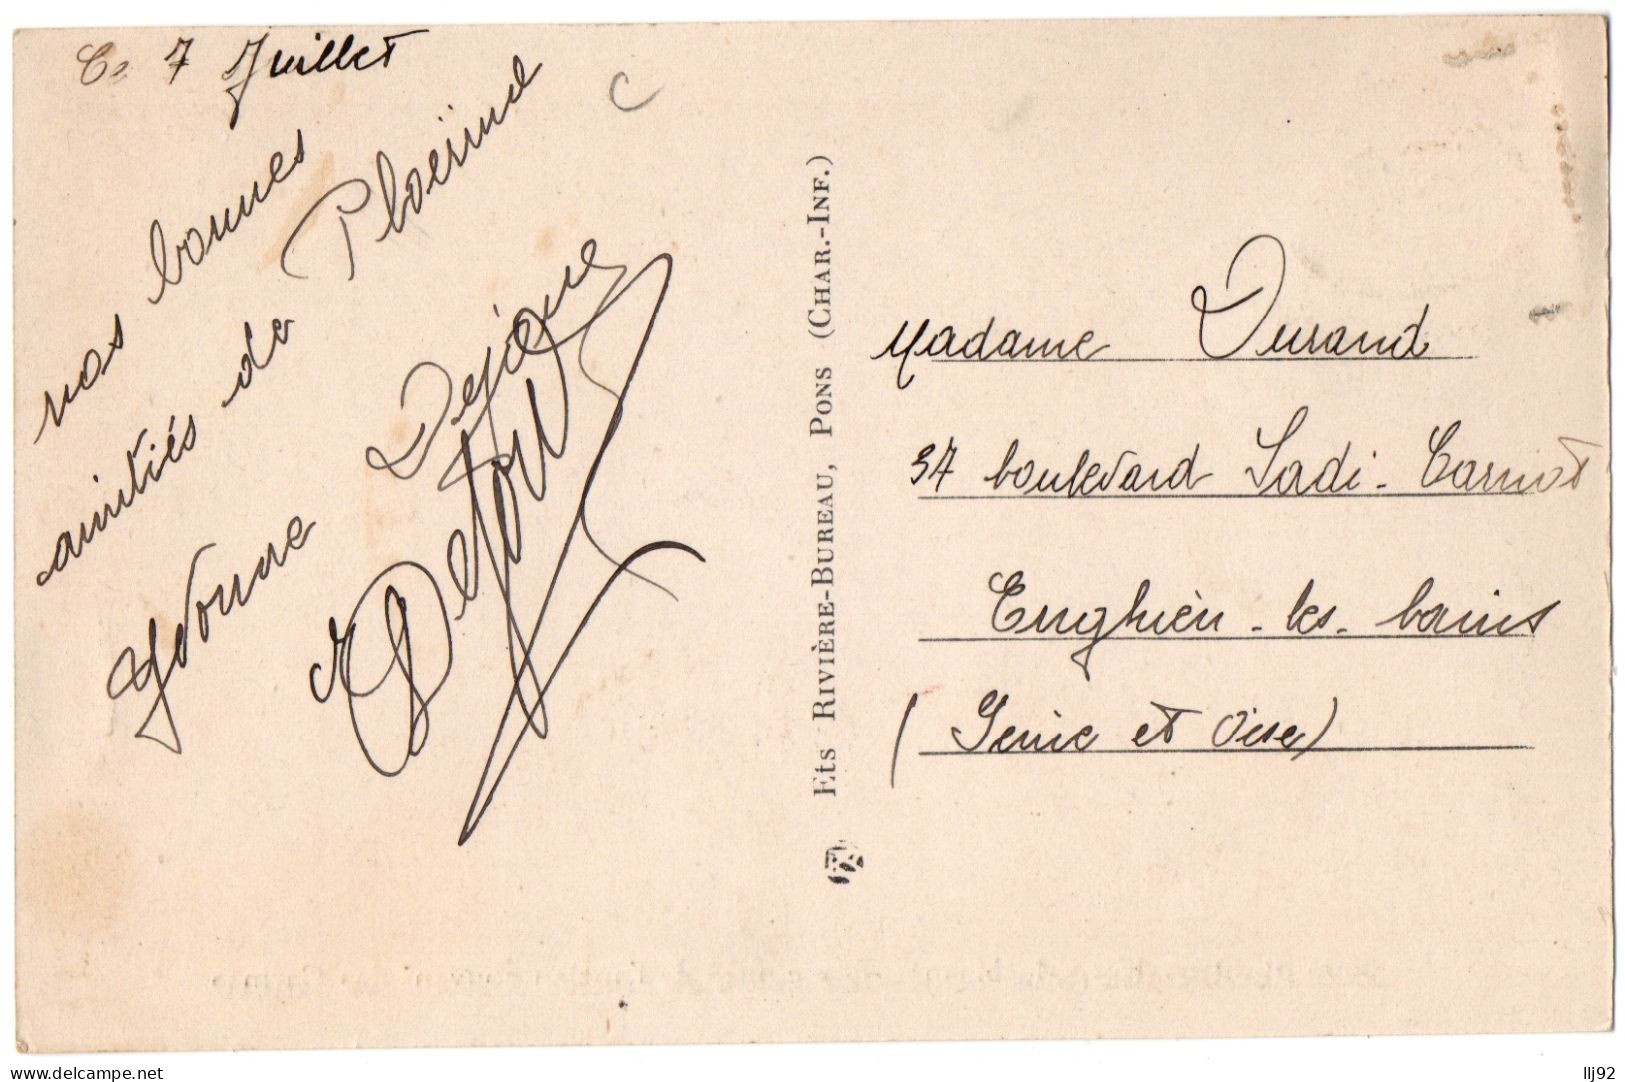 Ce 7 Juillet
nos bonnes
amitiés de Ploërmel
Yvonne Dejoue
C
Ets RIVIÈRE-BUREAU, PONS (CHAR.-INF.)
Madame Durand
37 boulevard Sadi-Carnot
Enghien-les-bains
(Seine et Oise)
delcampe.net
llj92